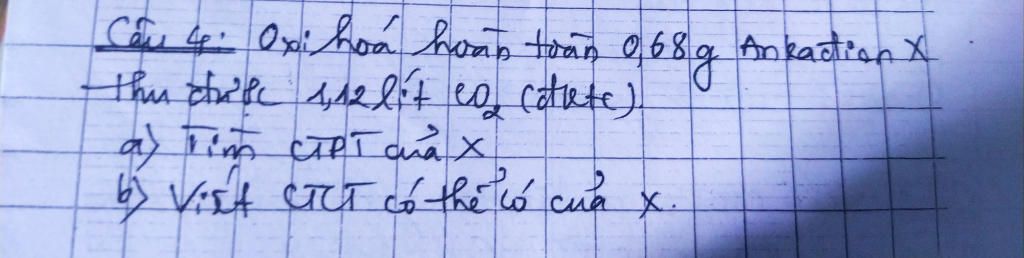 Câu 4: Oxi hoá hoàn toàn 0,68g Ankađien X
thu được 1,12 lít CO₂ (đktc)
a) Tìm CTPT của X
b) Viết CTCT có thể có của X.